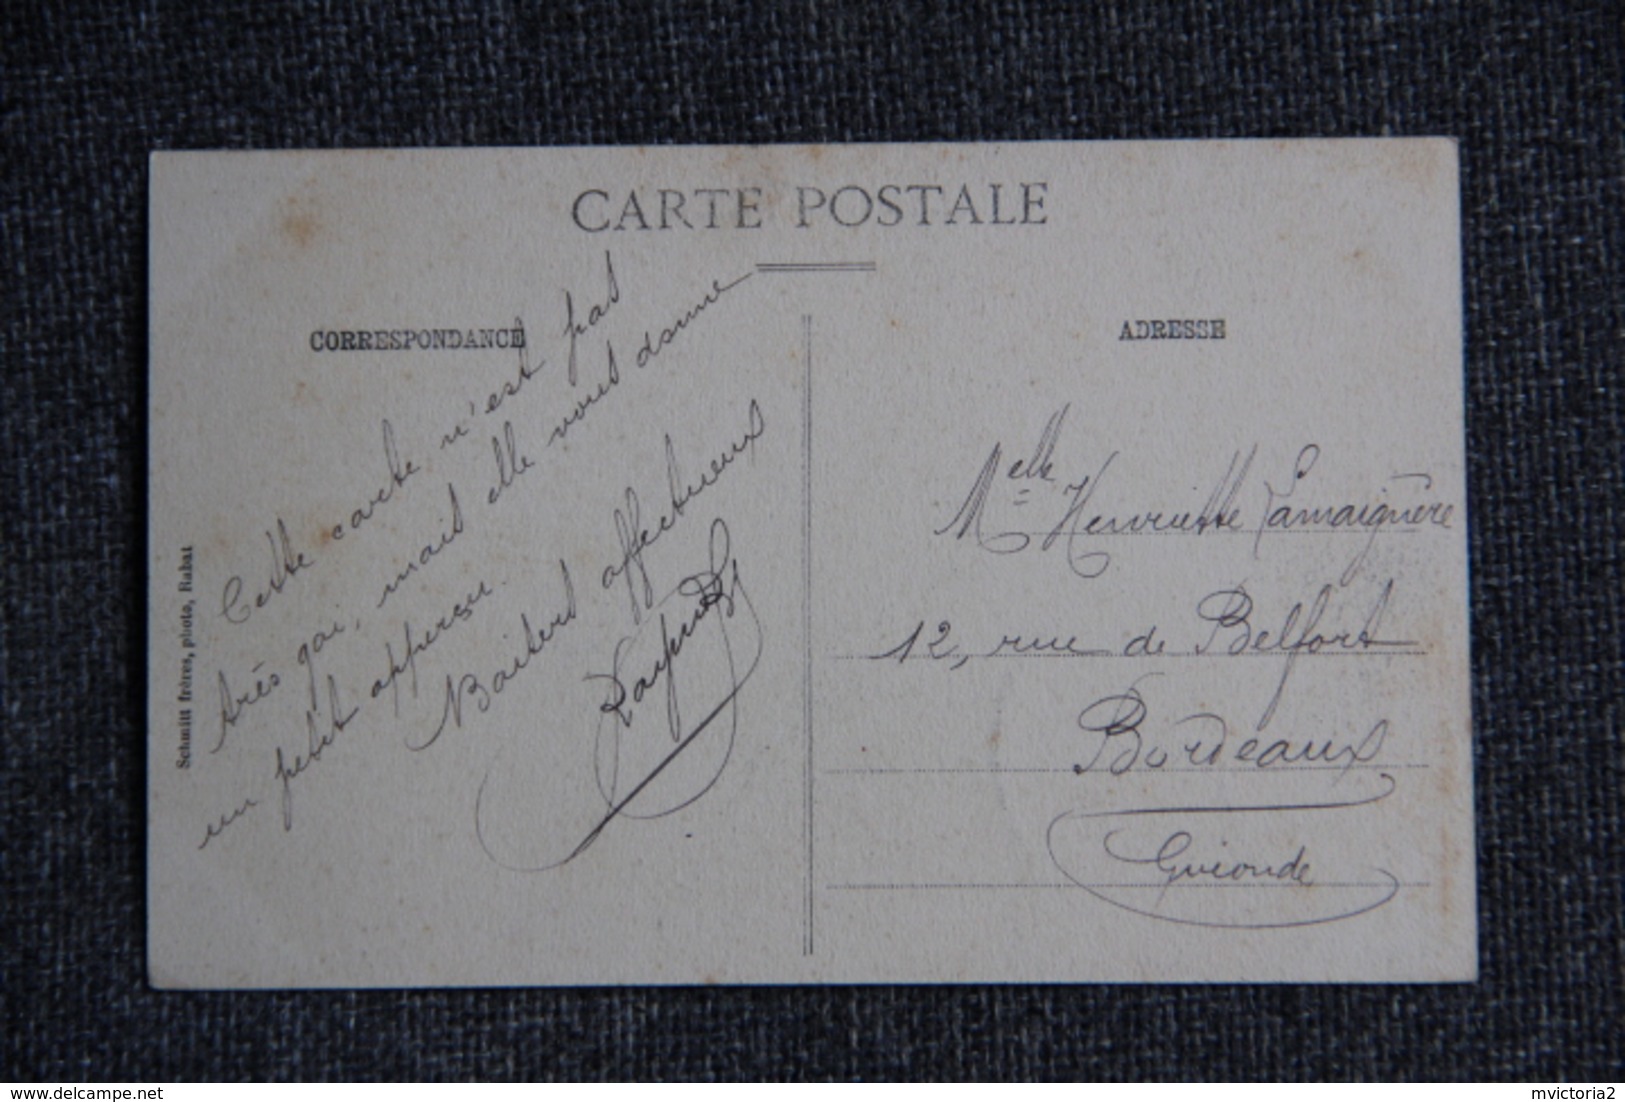 CARTE POSTALE
CORRESPONDANCE
Cette carte n'est pas
très gai, mais elle vous donne
un petit apperçu.
Baisers affectueux
Schmitt frères, photo, Rabat
ADRESSE
Melle Henriette Lamaignère
12, rue de Belfort
Bordeaux
Gironde
delcampe.net
mvictoria2